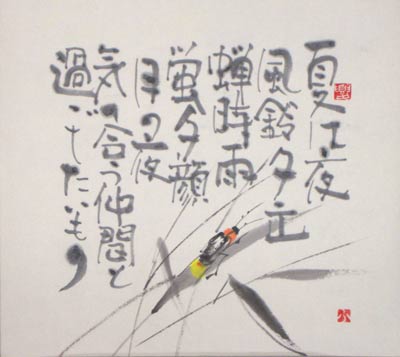 夏は夜
風鈴夕立
蝉時雨
蛍夕顔
月の夜
気の合う仲間と
過ごしたいもの